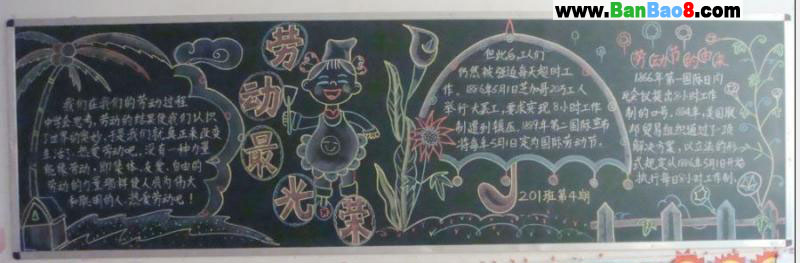 www.BanBao8.com
我们在我们的劳动过程
中学会思考,劳动的结果使我们认识
了世界的奥妙,于是我们就真正来改变
生活了。热爱劳动吧。没有一种力量
能像劳动,即集体、友爱、自由的
劳动的力量那样使人成为伟大
和聪明的人,热爱劳动吧!
劳动最光荣
但此后工人们
仍然被强迫每天超时工
作。1886年5月1日芝加哥20万工人
举行大罢工,要求实现8小时工作
制遭到镇压。1889年第二国际宣布
将每年5月1日定为国际劳动节。
201班第4期
劳动节的由来
1866年第一国际日内
瓦会议提出8小时工作
制的口号。1884年,美国联
邦贸易组织通过了一项
解决方案,以立法的形
式规定从1886年5月1日开始
执行每日8小时工作制。